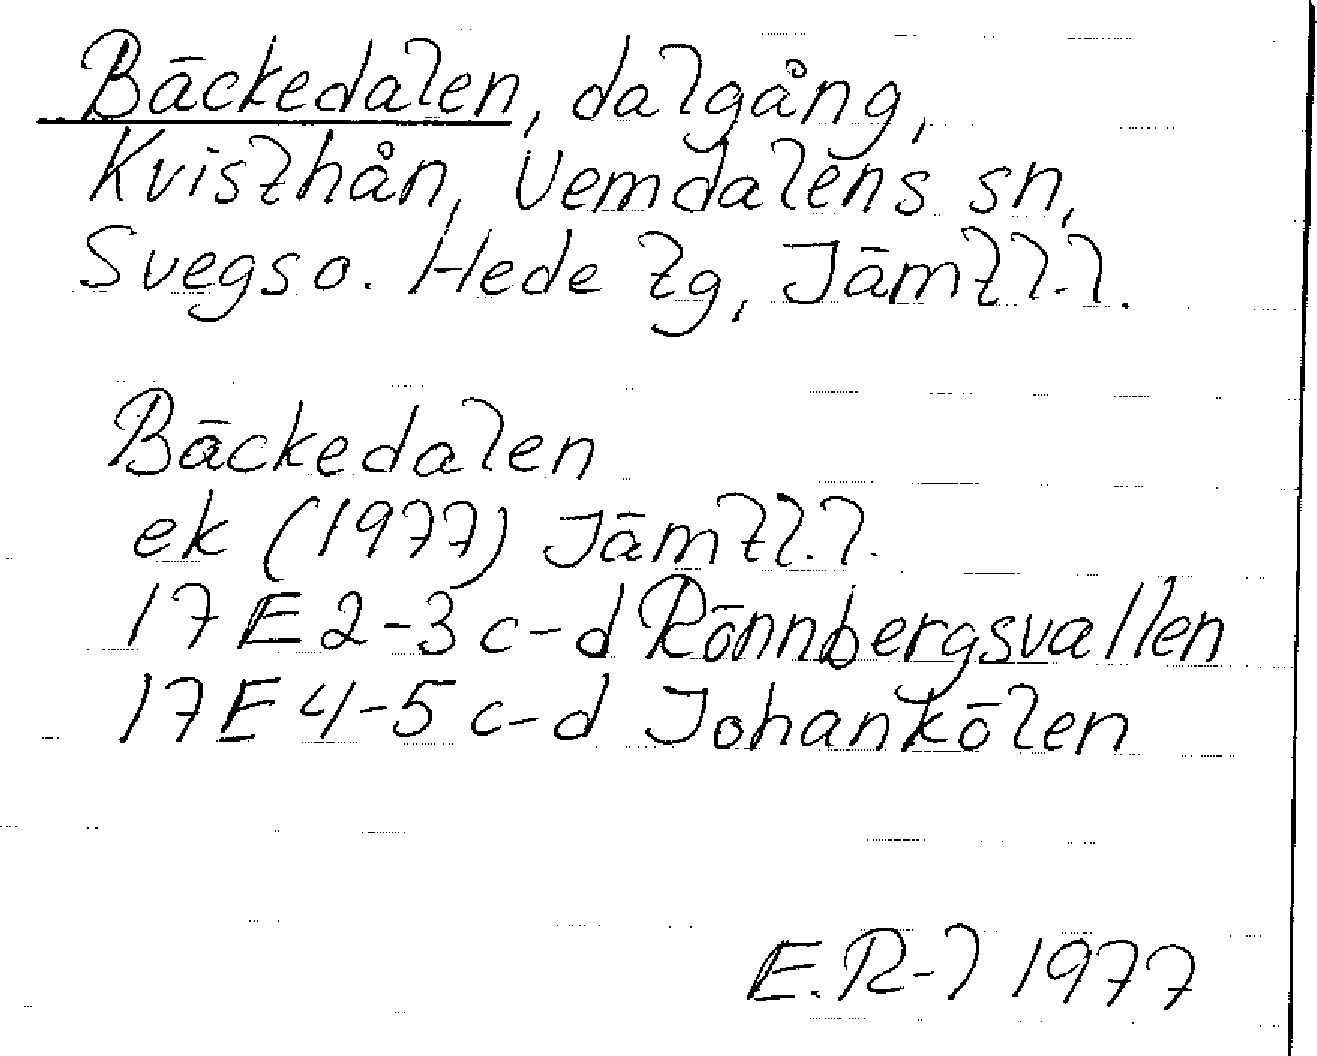 Bäckedalen, dalgång,
Kvisthån, Vemdalens sn,
Svegs o. Hede tg, Jämtl. l.
Bäckedalen
ek (1977) Jämtl. l.
17 E 2-3 c-d Rönnbergsvallen
17 E 4-5 c-d Johankölen
E. R-l 1977